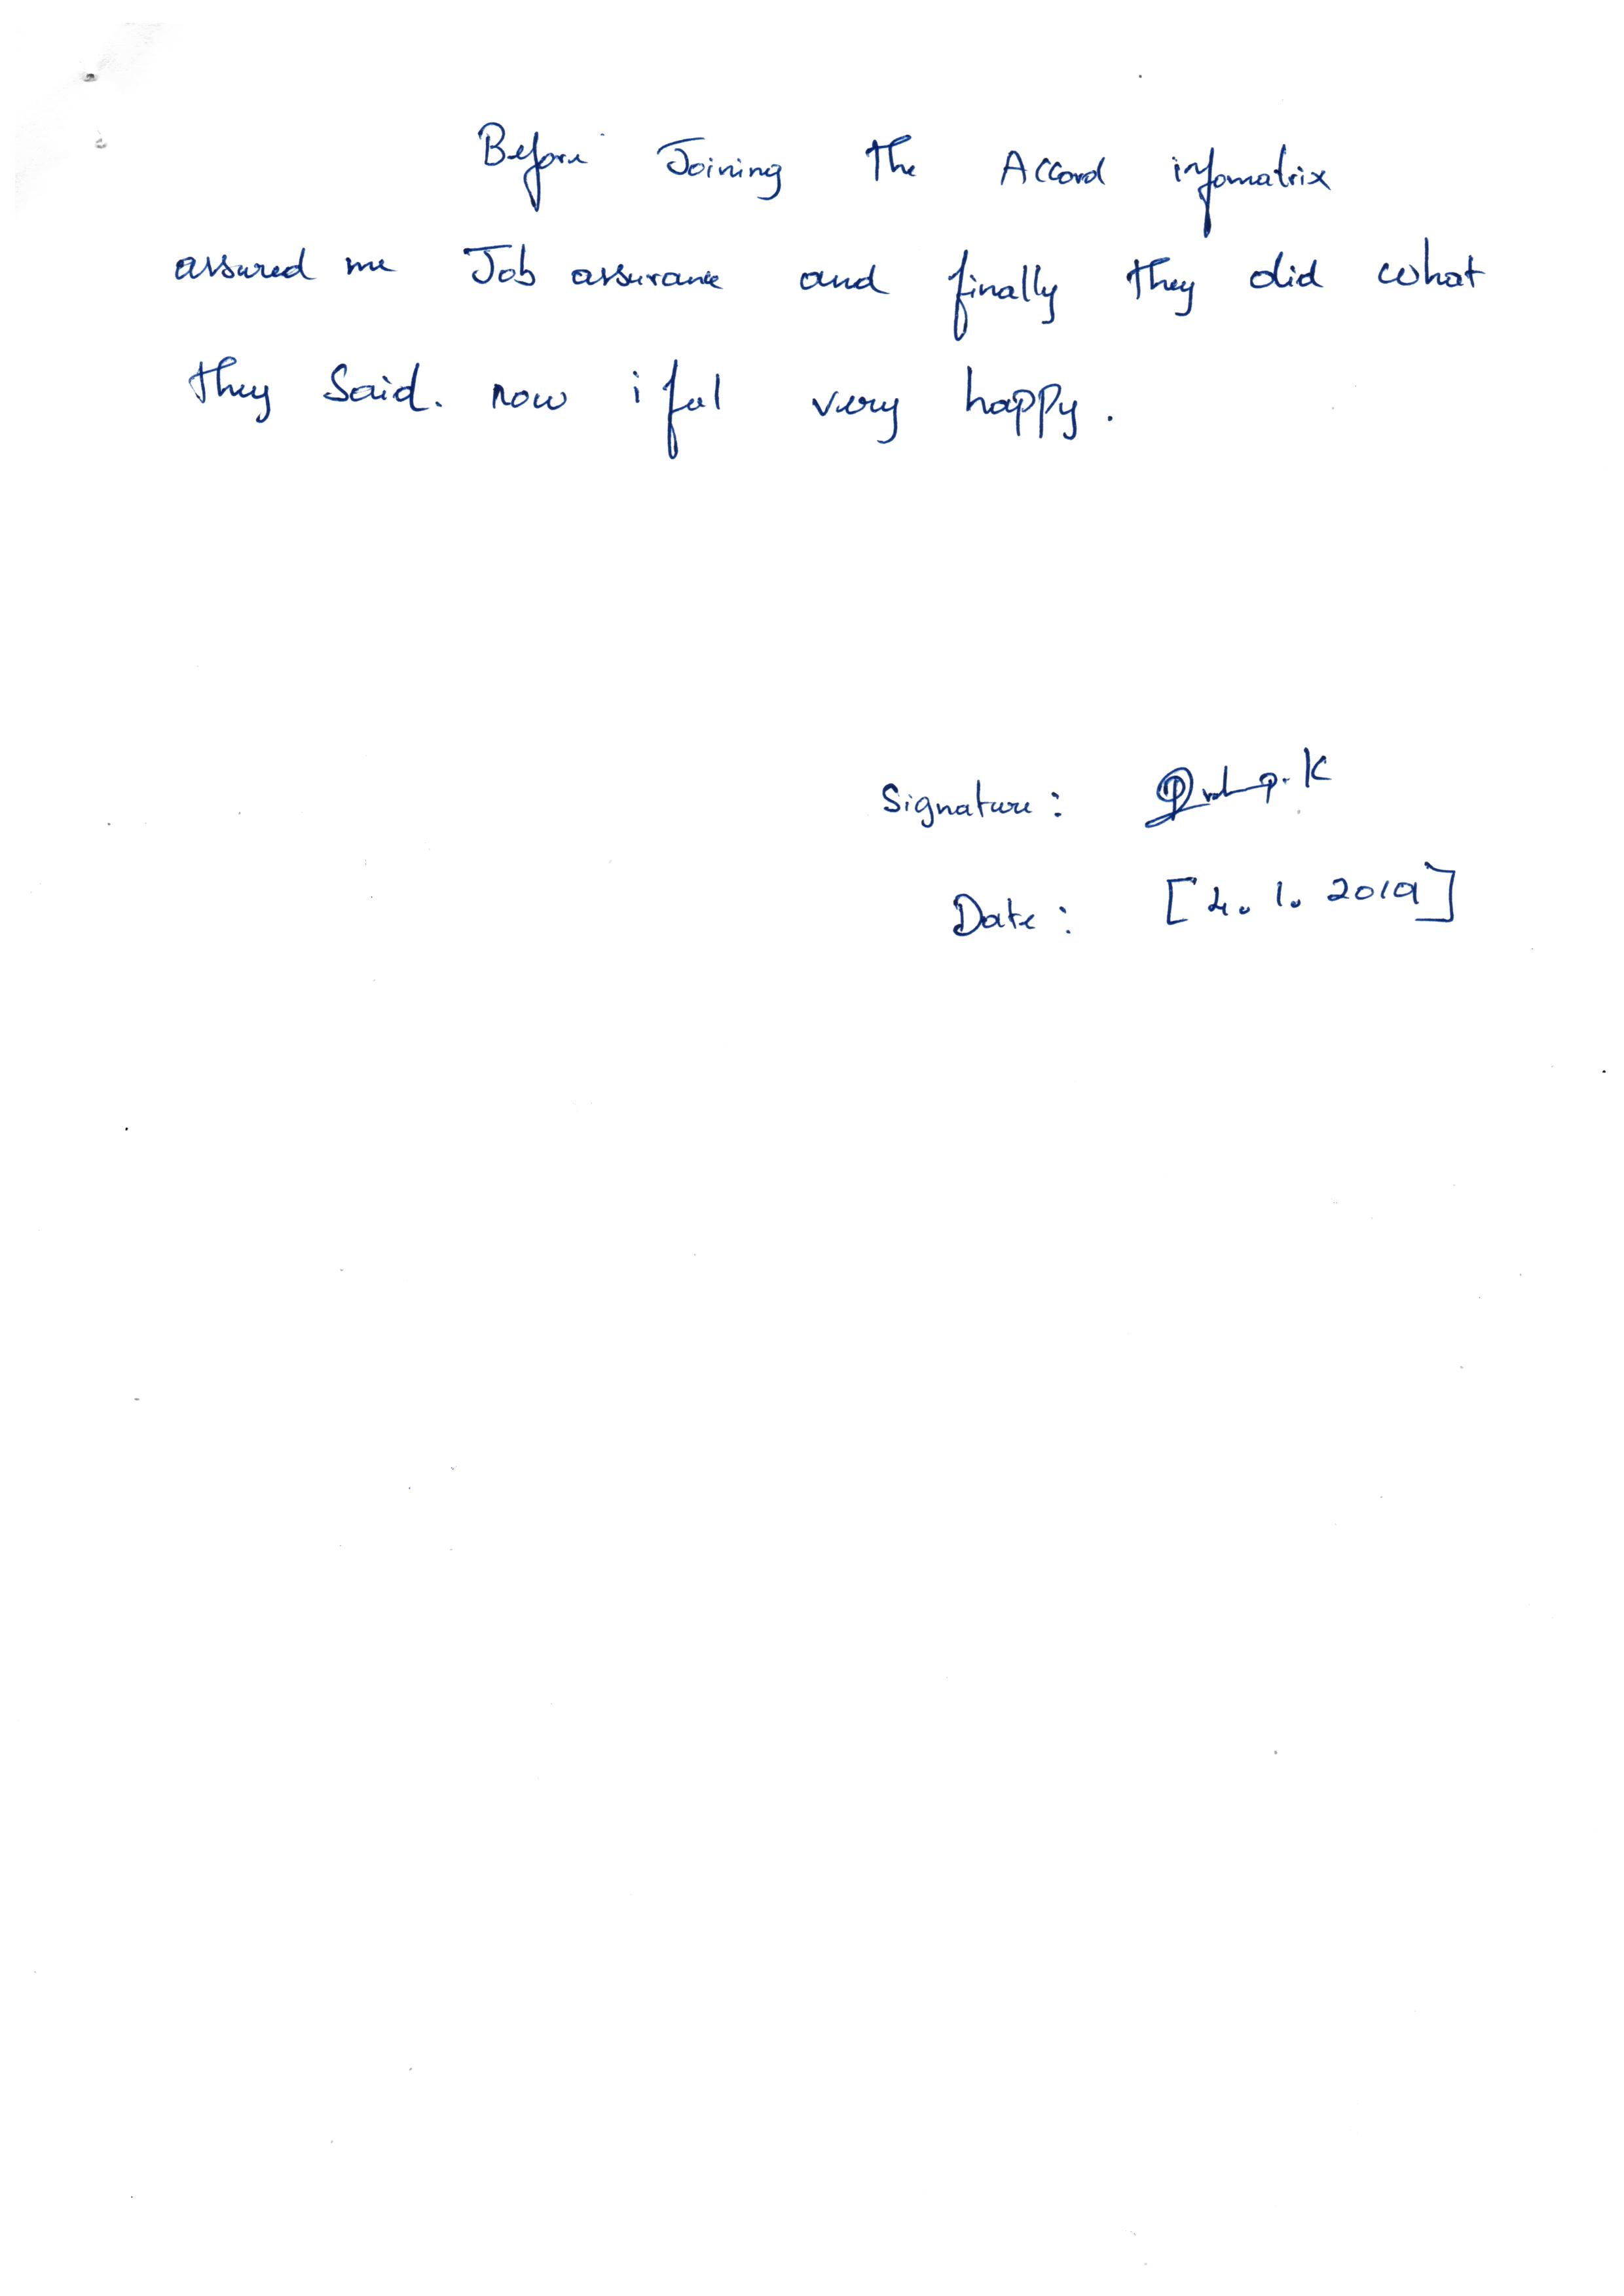 Before Joining The Accord infomatrix
assured me Job assurance and finally they did what
they Said. now i feel very happy.
Signature: K
Date: [4. 1. 2019]